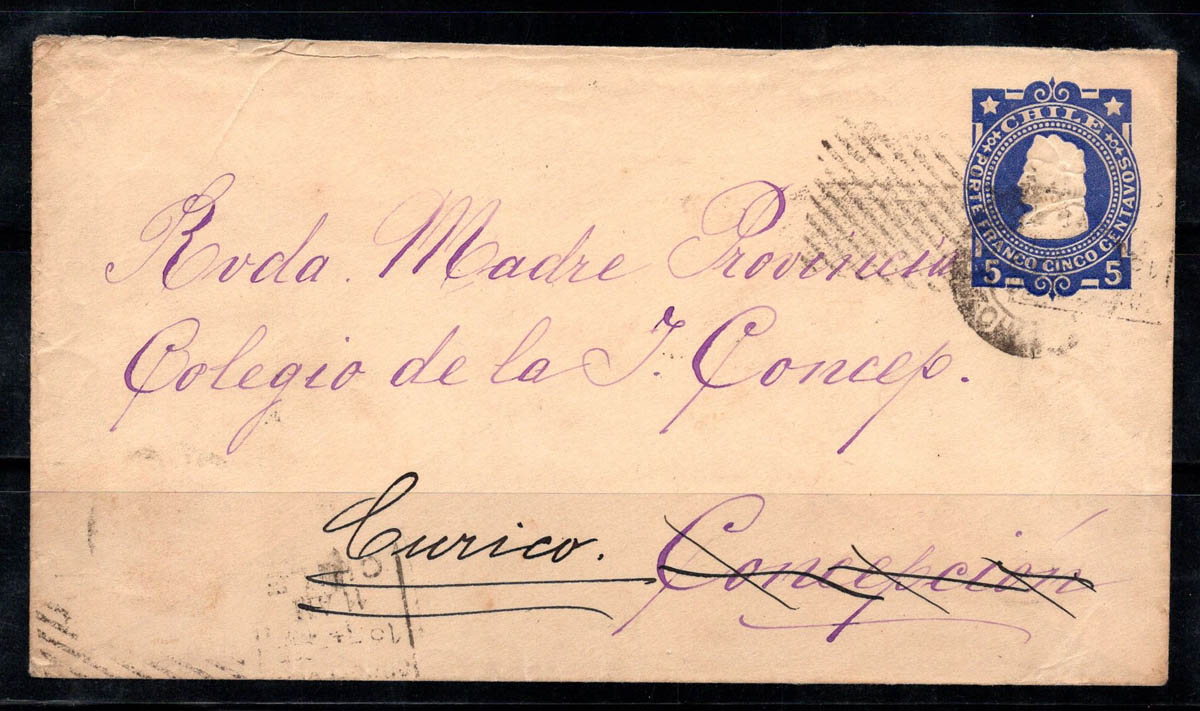 CHILE
PORTE FRANCO CINCO CENTAVOS
5 5
Rvda. Madre Provincial
Colegio de la I. Concep.
Curico. Concepción